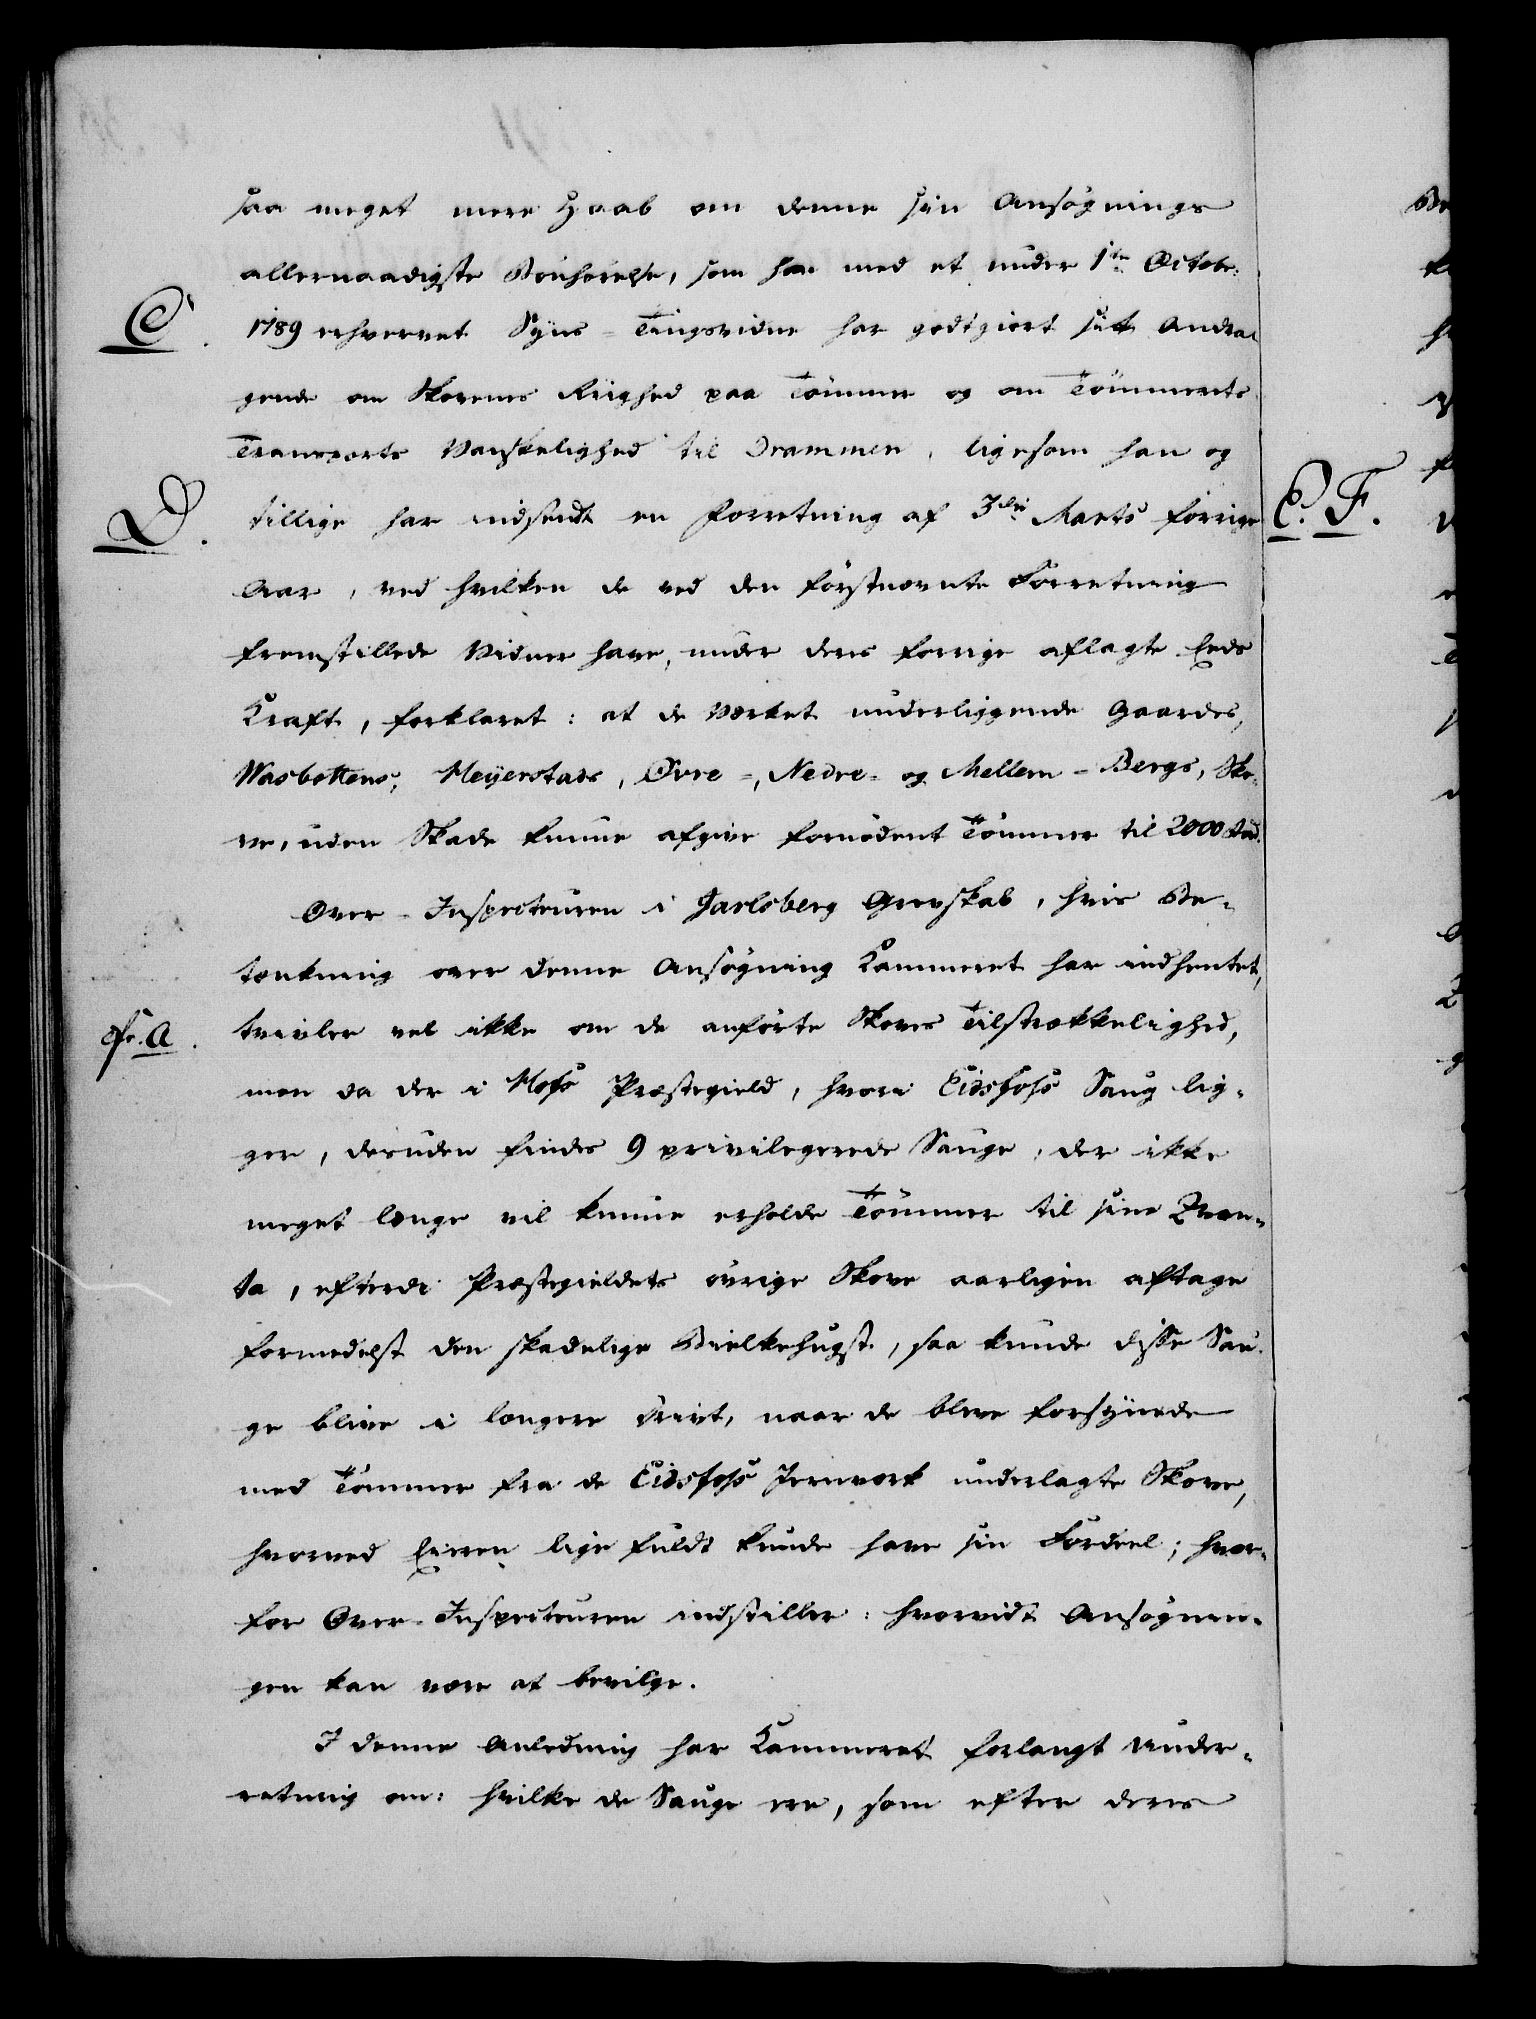 saa meget mere Haab om denne sin Ansøgnings
allernaadigste Bønhørelse, som han med et under 1te Octobr:
C. 1789 erhvervet Syns-Tingsvidne har godtgiort sit Andra-
gende om Skovenes Riighed paa Tømmer og om Tømmerets
Transports Vanskelighed til Drammen, ligesom han og
D. tillige har indsendt en Forretning af 3die Marts forrige
Aar, ved hvilken de ved den førstnævnte Forretning
fremstillede Vidner have, under deres forrige aflagte Eeds
Kraft, forklaret: at de Værket underliggende Gaardes,
Wasbottens, Meyerstads, Øvre-, Nedre- og Mellem-Bergs, Sko-
ve, uden Skade kunne afgive fornødent Tømmer til 2000 Bord.
Over-Inspecteuren i Jarlsberg Grevskab, hvis Be-
tænkning over denne Ansøgning Kammeret har indhentet,
cfr. A. tvivler vel ikke om de anførte Skoves Tilstrækkelighed,
men da der i Hofs Præstegield, hvori Eidsfoss Saug lig-
ger, desuden findes 9 privilegerede Sauge, der ikke
meget længe vil kunne erholde Tømmer til sine Qvan-
ta, efterdi Præstegieldets øvrige Skove aarligen aftage
formedelst den skadelige Bielkehugst, saa kunde disse Sau-
ge blive i længere Drivt, naar de bleve forsynede
med Tømmer fra de Eidsfoss Jernværk underlagte Skove,
hvorved Eieren lige fuldt kunde have sin Fordeel; hvor-
for Over-Inspecteuren indstiller: hvorvidt Ansøgnin-
gen kan være at bevilge.
I denne Anledning har Kammeret forlangt Under-
retning om: hvilke de Sauge ere, som efter deres
E. F.